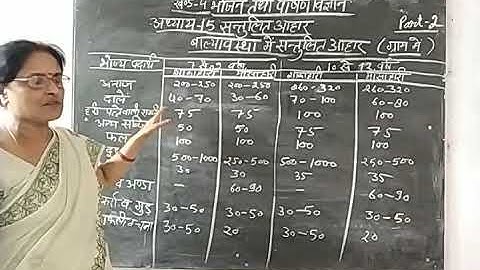 खण्ड-4 भोजन तथा पोषण विज्ञान
अध्याय-15 सन्तुलित आहार
Part-2
बाल्यावस्था में सन्तुलित आहार (ग्राम में)
भोज्य पदार्थ 10 से 12 वर्ष
शाकाहारी मांसाहारी शाकाहारी मांसाहारी
अनाज 200-250 200-250 260-320 260-320
दालें 40-70 30-60 70-100 60-80
हरी पत्तेवाली 75 75 100 100
अन्य 50 50 75 75
फल 100 100 100 100
500-1000 250-500 500-1000 250-500
30 30 35 35
व अण्डा - 60-90 - 60-90
व गुड़ 30-50 30-50 30-50 30-50
30-50 20 30-50 20